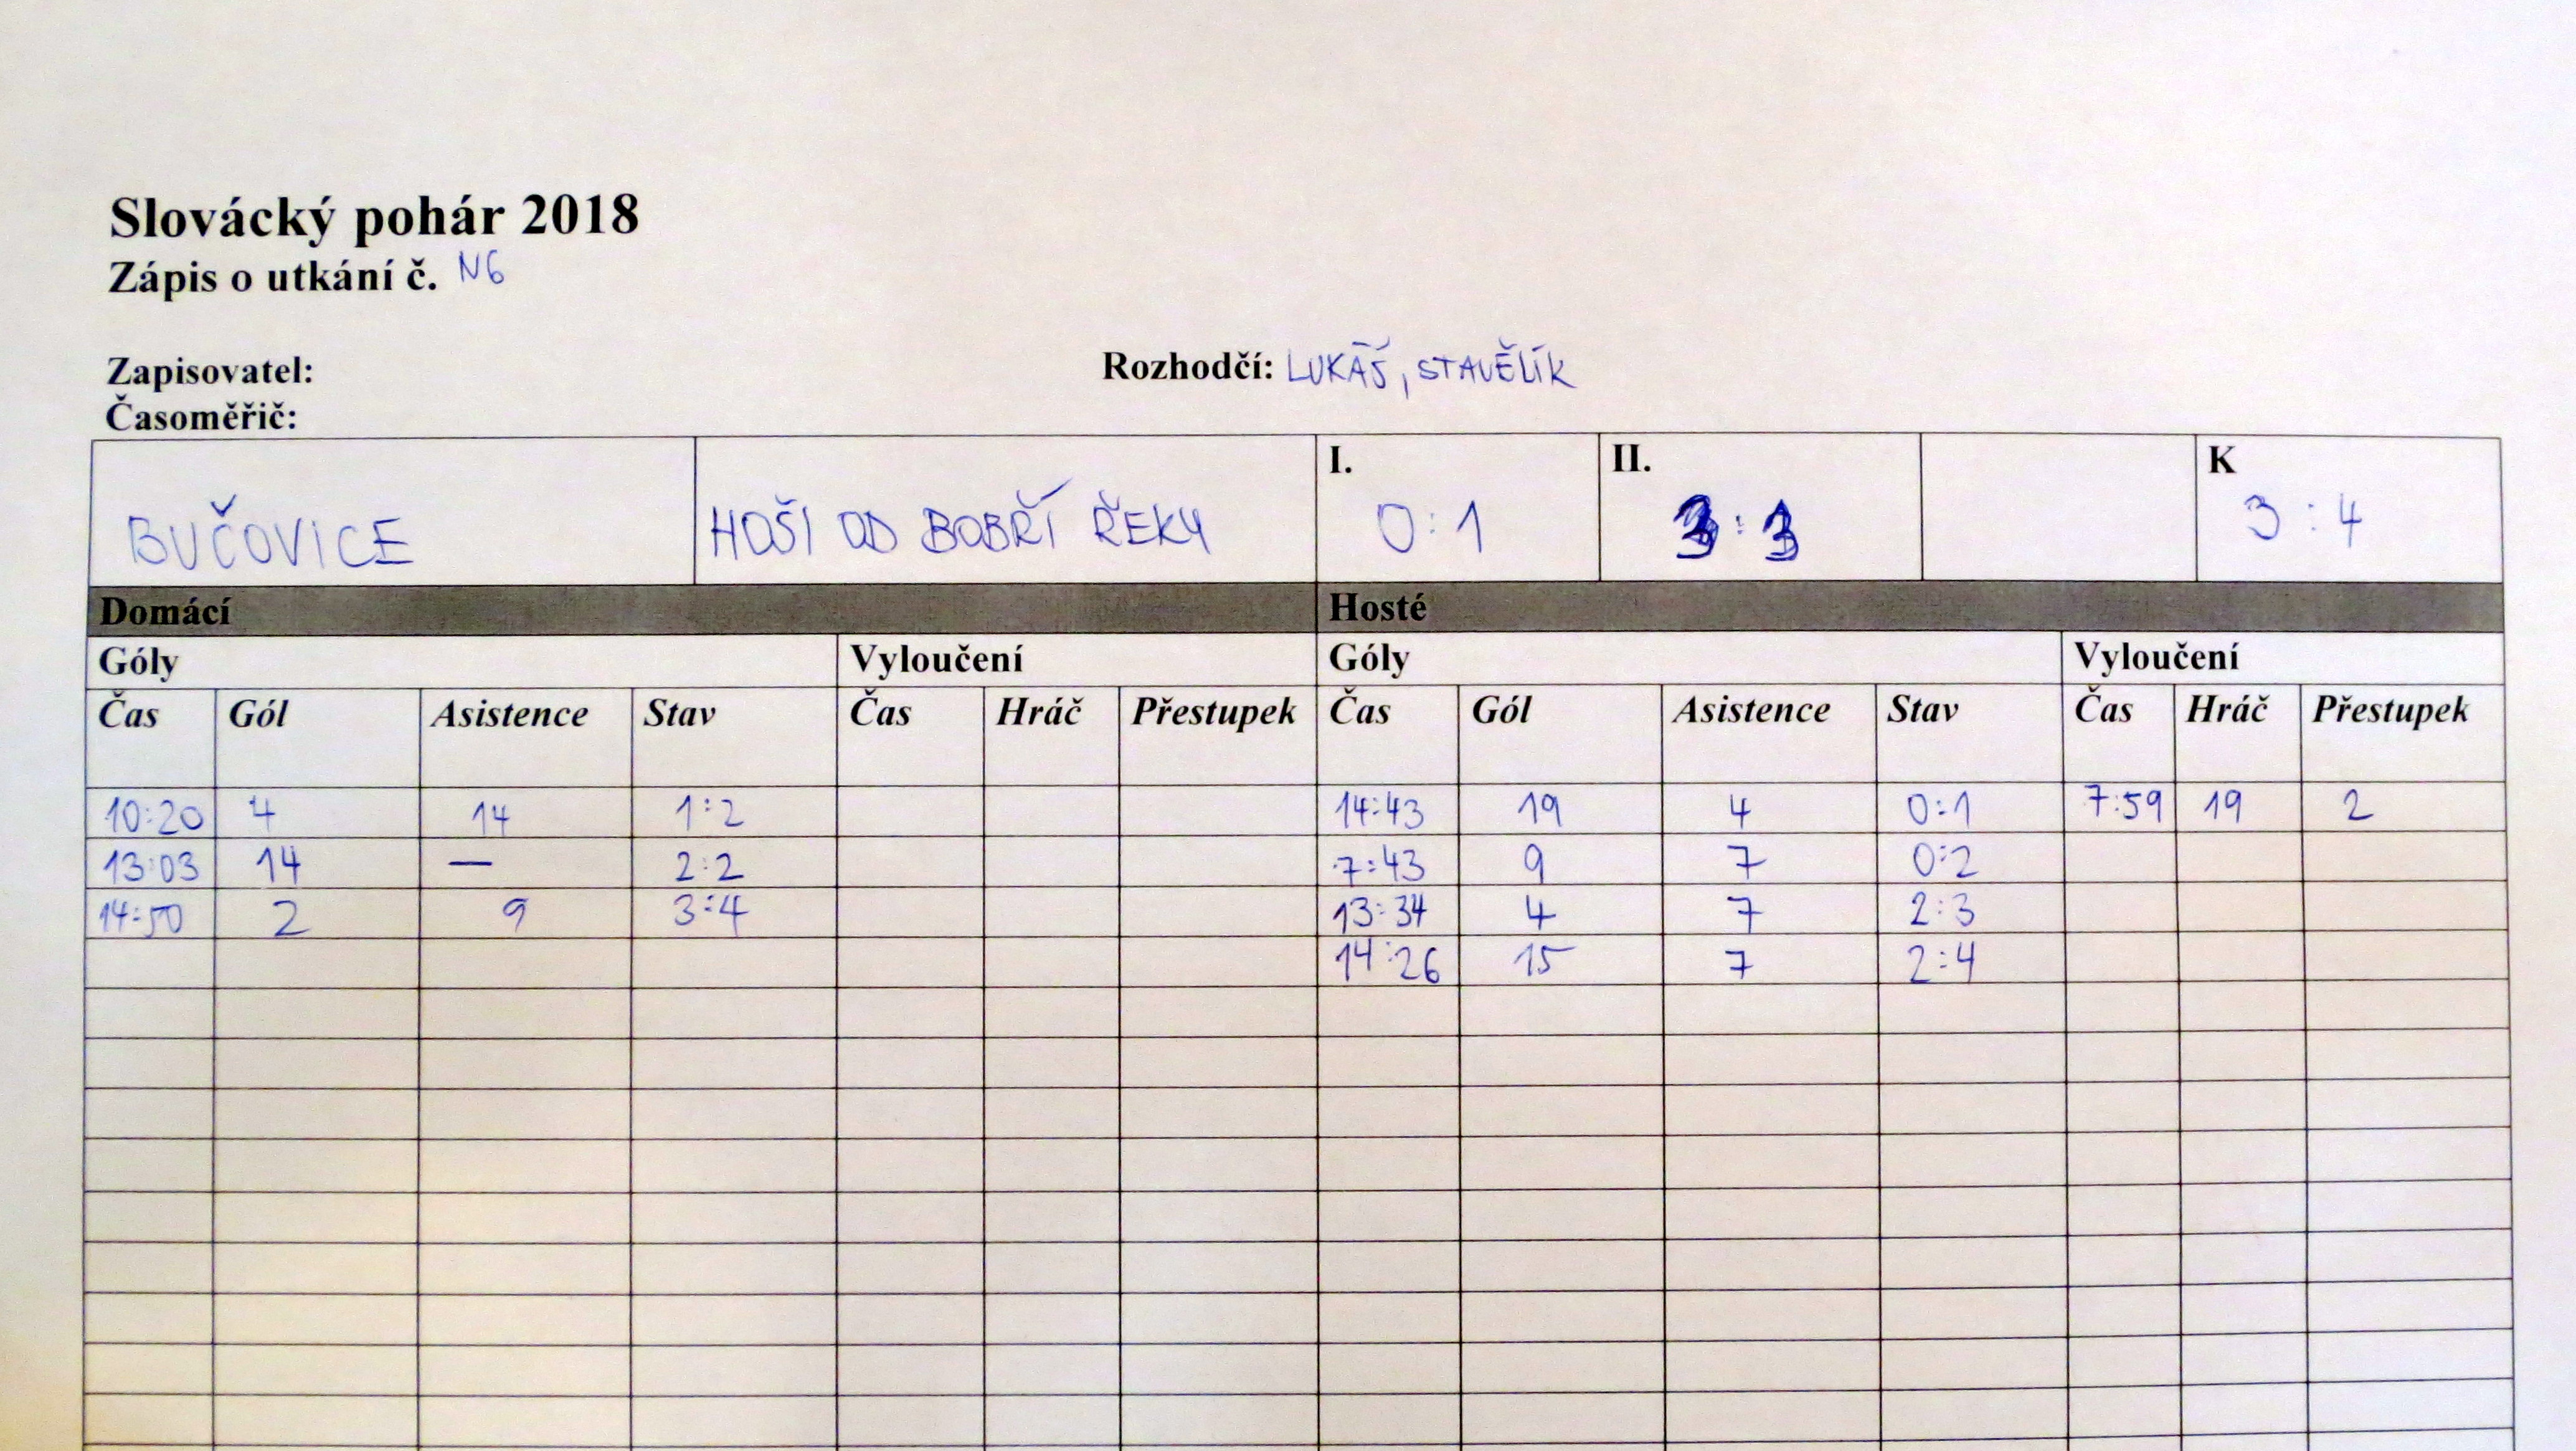 Slovácký pohár 2018
Zápis o utkání č. N6
Zapisovatel: Rozhodčí: LUKÁŠ, STAVĚLÍK
Časoměřič:
I. II. K
BUČOVICE HOŠI OD BOBŘÍ ŘEKY 0:1 3:3 3:4
Domácí Hosté
Góly Vyloučení Góly Vyloučení
Čas Gól Asistence Stav Čas Hráč Přestupek Čas Gól Asistence Stav Čas Hráč Přestupek
10:20 4 14 1:2 14:43 19 4 0:1 7:59 19 2
13:03 14 — 2:2 7:43 9 7 0:2
14:50 2 9 3:4 13:34 4 7 2:3
14:26 15 7 2:4